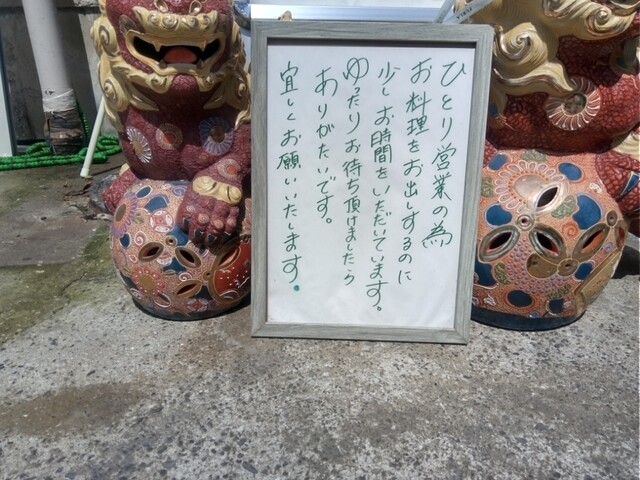 ひとり営業の為
お料理をお出しするのに
少しお時間をいただいています。
ゆったりお待ち頂けましたら
ありがたいです。
宜しくお願いいたします。